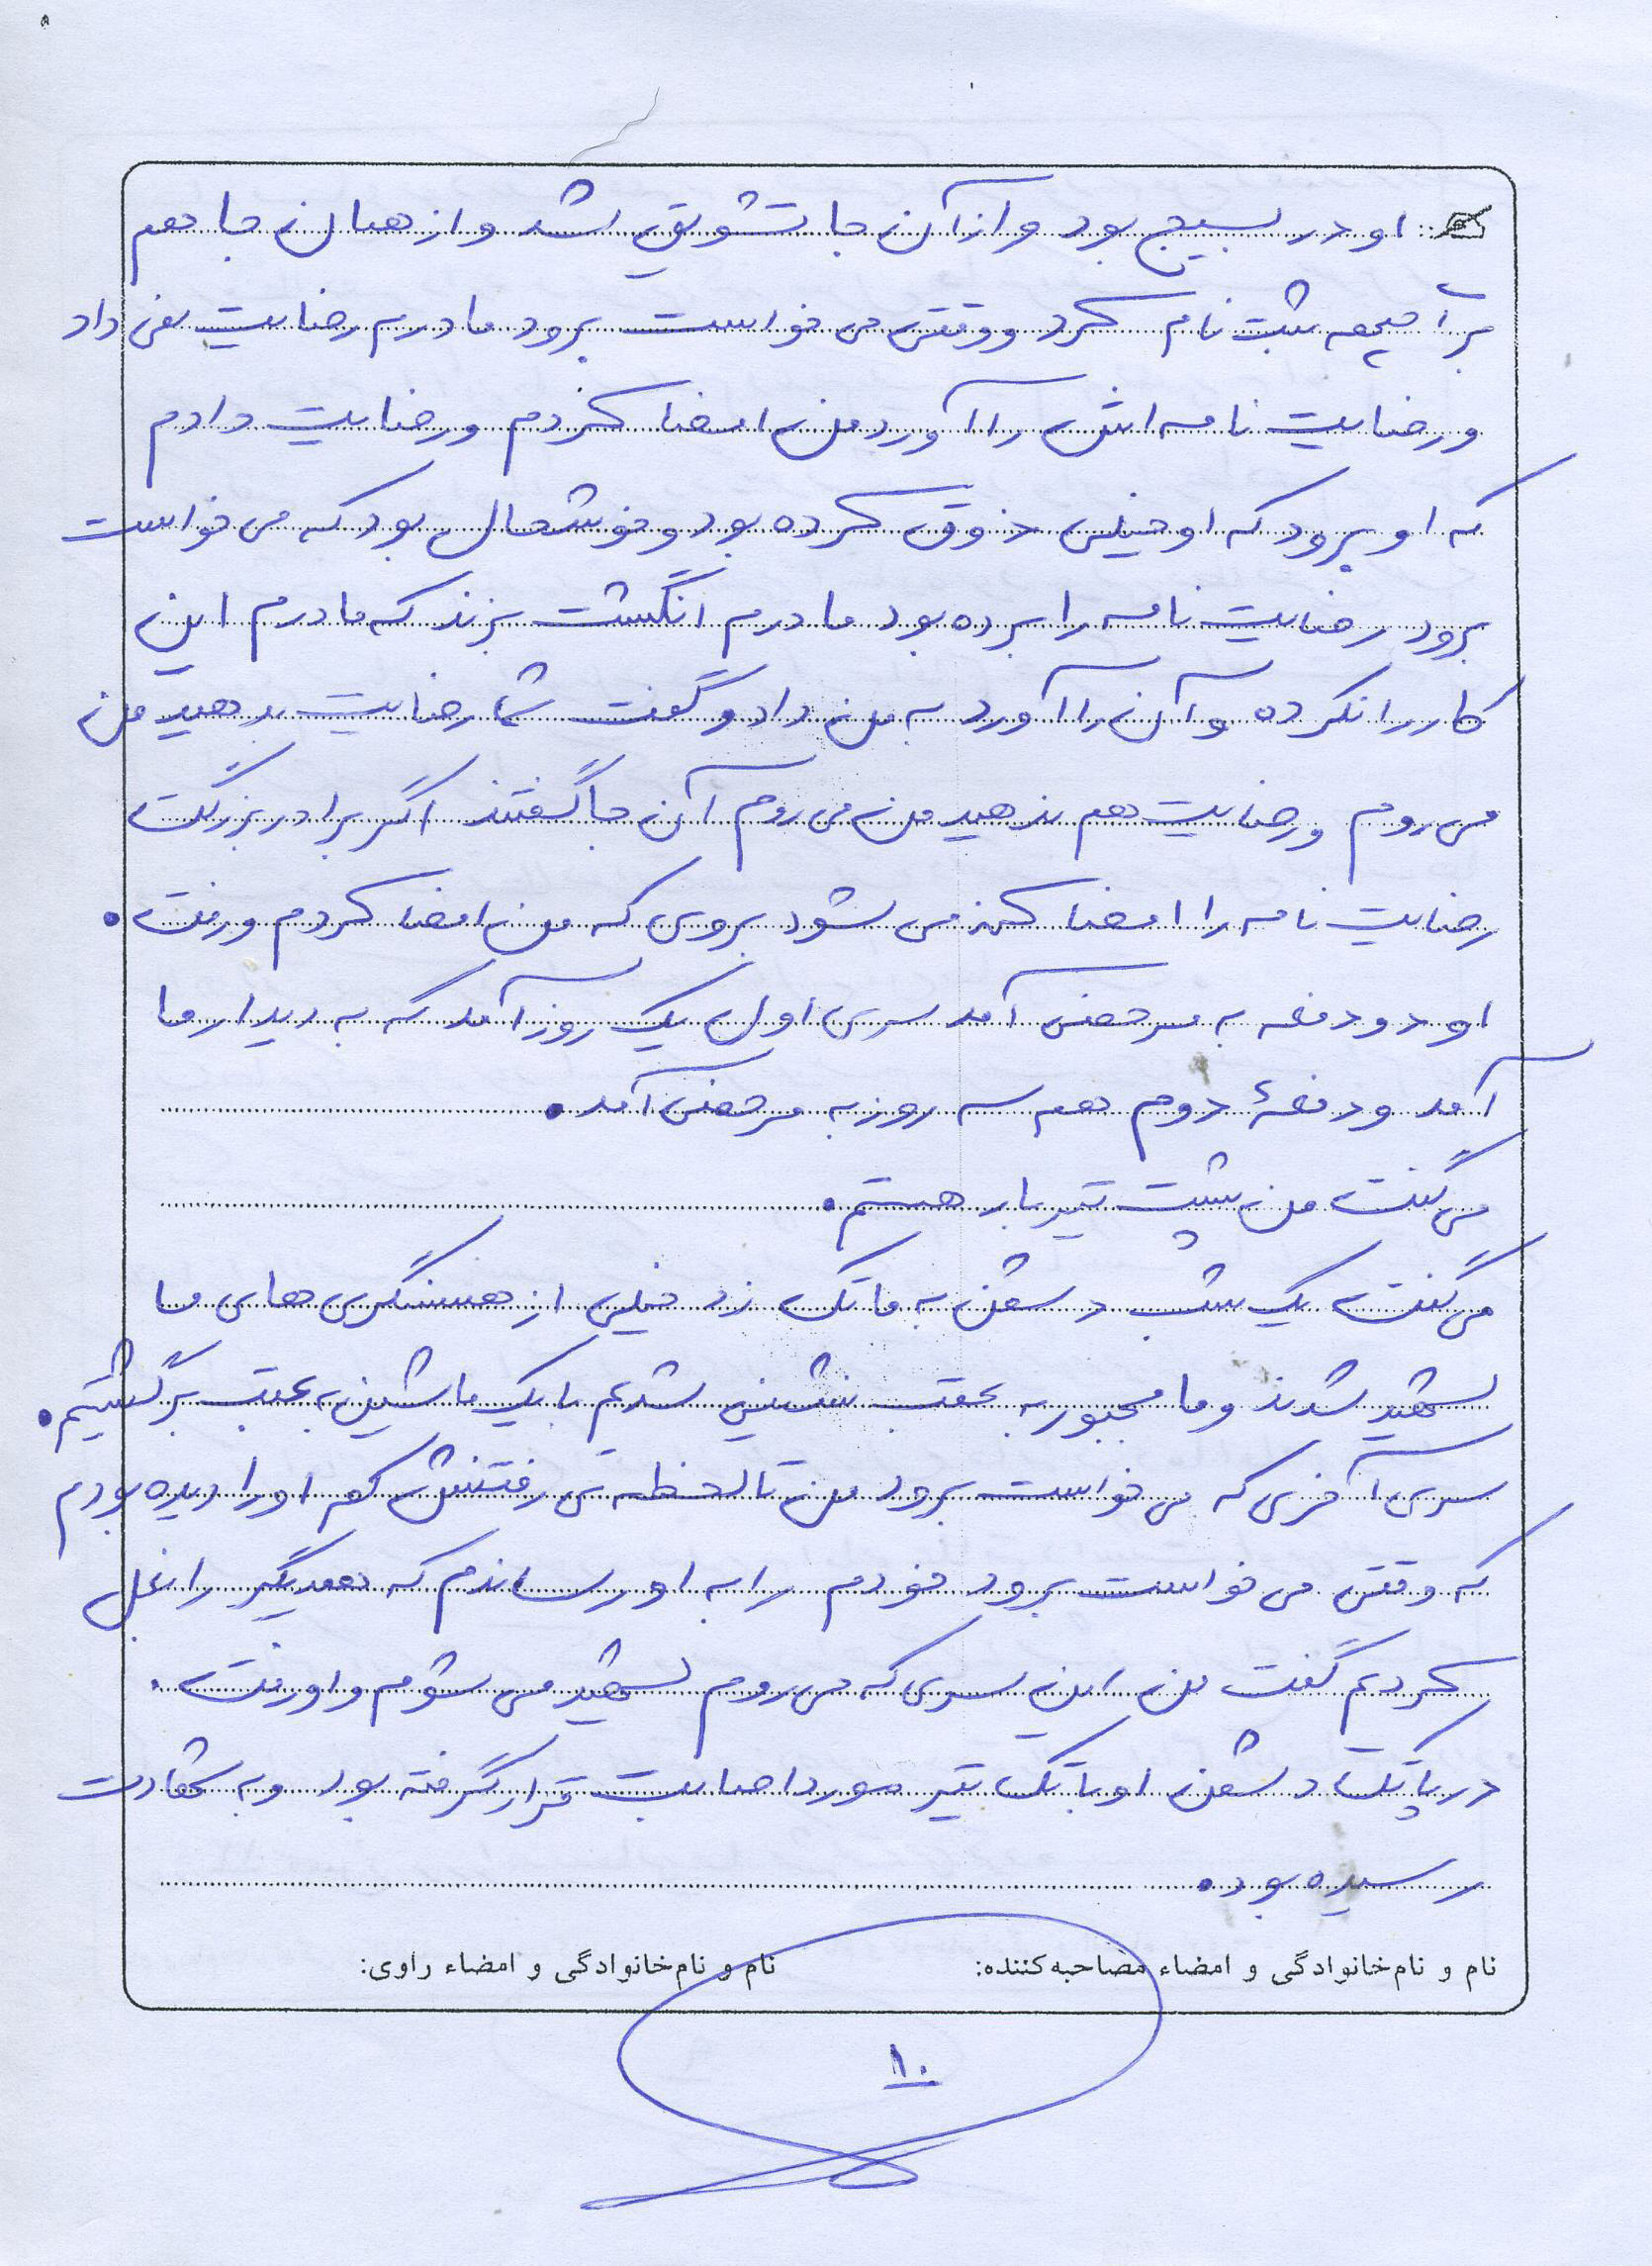 او در بسیج بود و از آن جا تشویق اشد و از همان جا هم
برای جبهه ثبت نام کرد و وقتی می خواست برود مادرم رضایت نمی داد
و رضایت نامه اش را آورد من امضا کردم و رضایت دادم
که او برود که او خیلی ذوق کرده بود و خوشحال بود که می خواست
برود رضایت نامه را برده بود مادرم انگشت بزند که مادرم این
کار را نکرده و آن را آورد به من داد و گفت شما رضایت بدهید من
می روم و رضایت هم ندهید من می روم آن جا گفتند اگر برادر بزرگت
رضایت نامه را امضا کند می شود بروی که من امضا کردم و رفت.
او دو دفعه به مرخصی آمد سری اول یک روز آمد که به دیدار ما
آمد و دفعهٔ دوم هم سه روز به مرخصی آمد.
می گفت من پشت تیربار هستم.
می گفت یک شب دشمن به ما تک زد خیلی از همسنگری های ما
شهید شدند و ما مجبور به عقب نشینی شدیم با یک ماشین به عقب برگشتیم.
سری آخری که می خواست برود من تا لحظه ی رفتنش کم او را دیده بودم
که وقتی می خواست برود خودم را به او رساندم که همدیگر را بغل
کردیم گفت من این سری که می روم شهید می شوم و او رفت.
در پاتک دشمن او با تک تیر مورد اصابت قرار گرفته بود و به شهادت
رسیده بود.
نام و نام‌خانوادگی و امضاء مصاحبه‌کننده: نام و نام‌خانوادگی و امضاء راوی:
۱۰